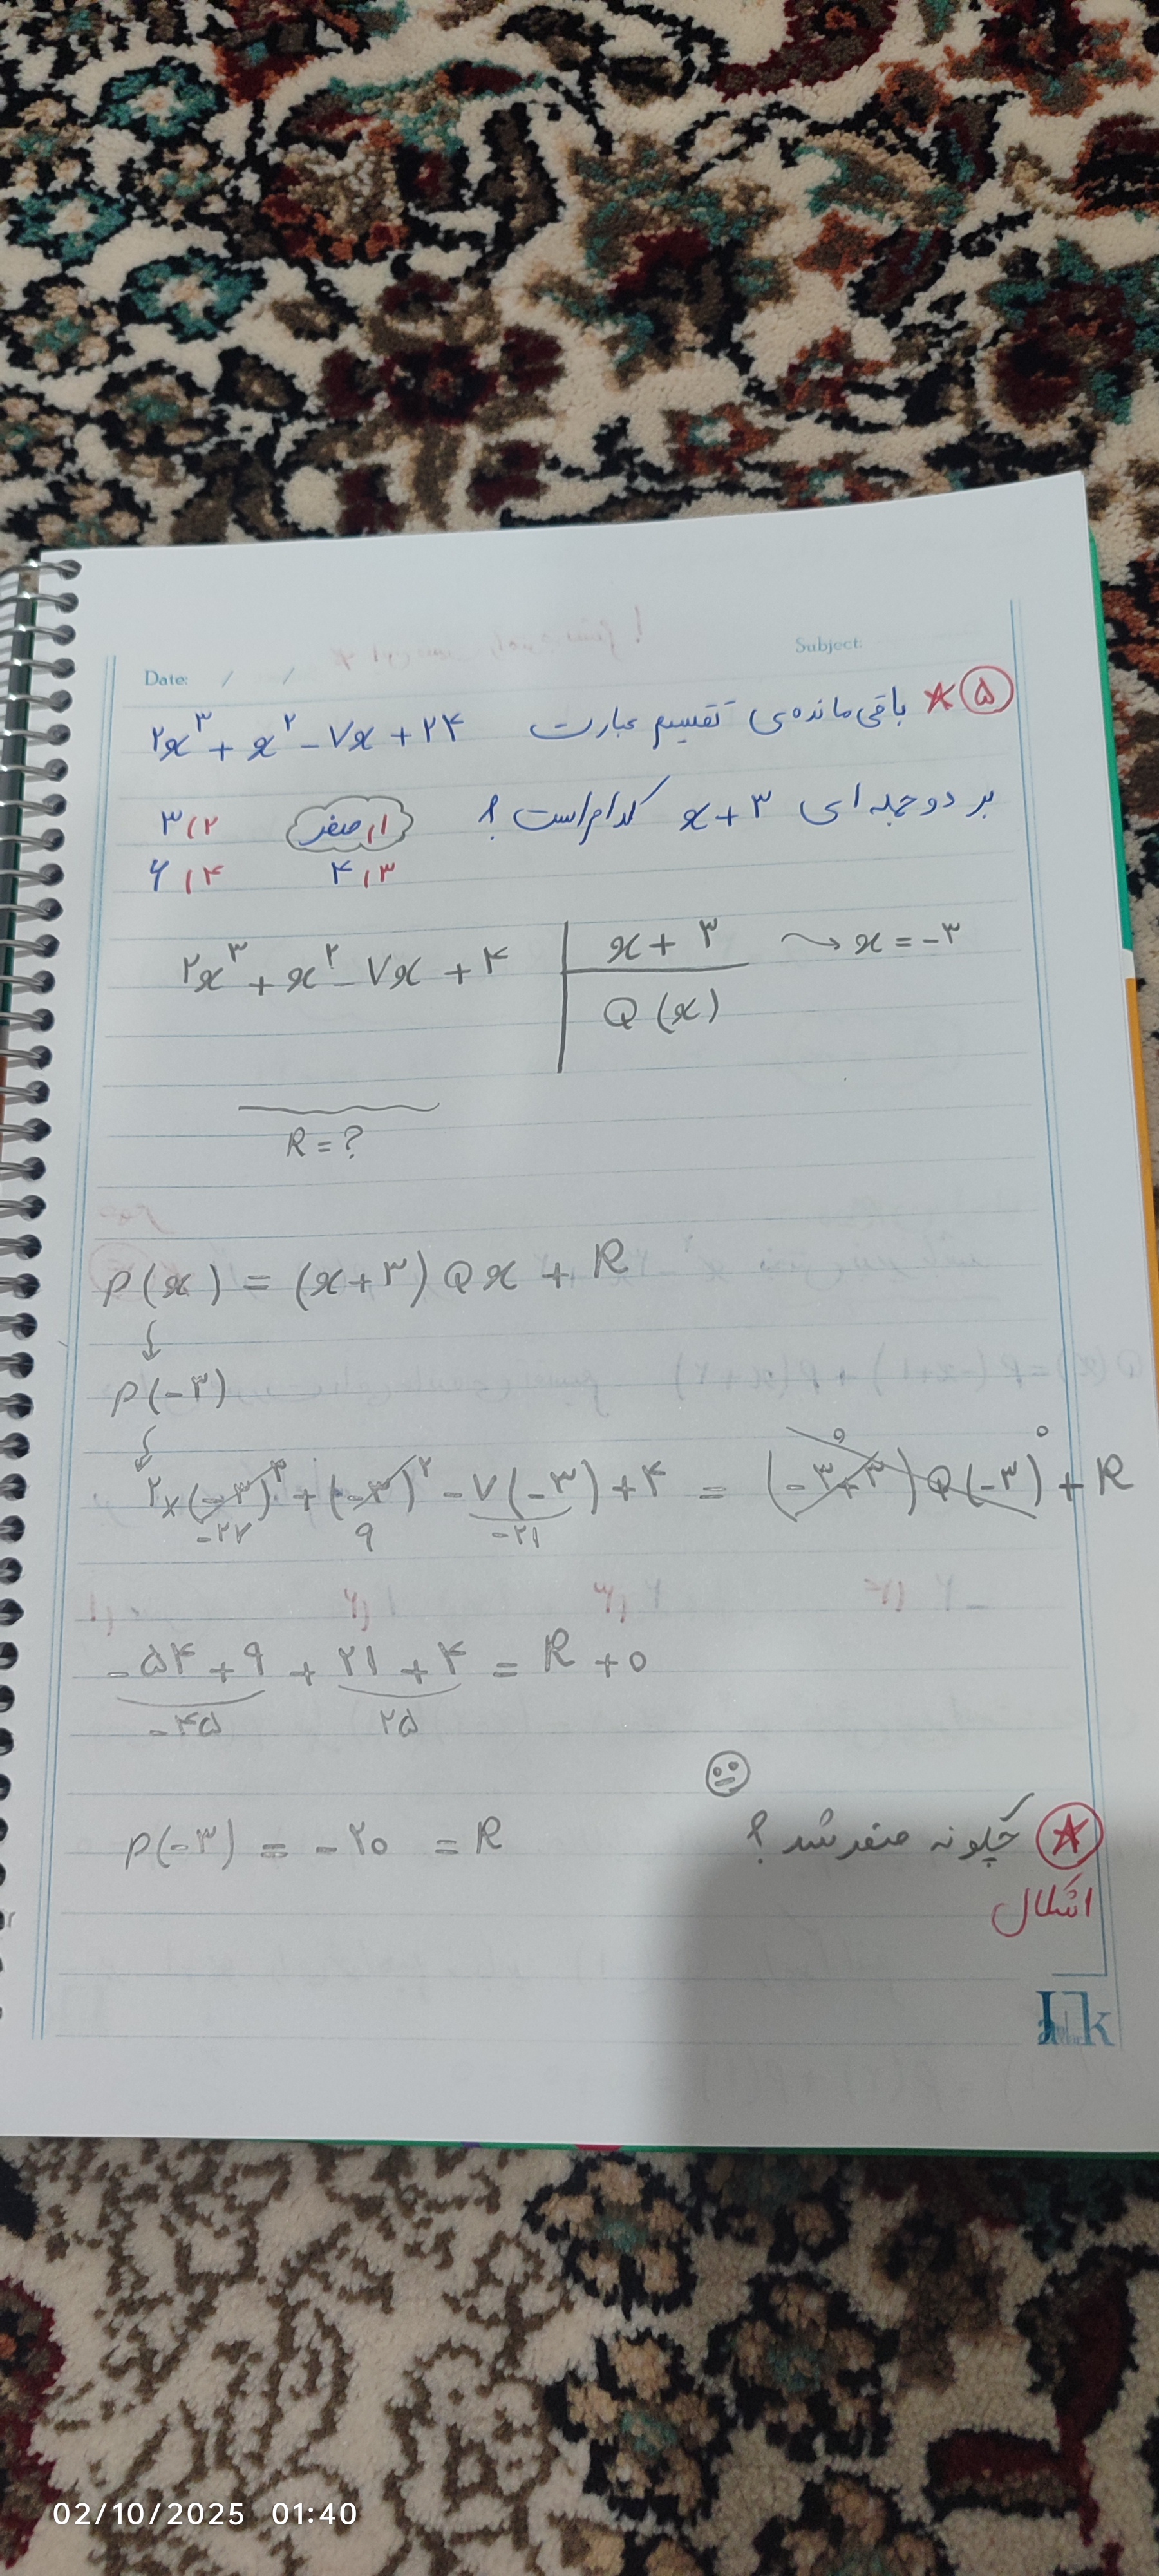 Date: / /
Subject:
۵ * باقی‌مانده‌ی تقسیم عبارت ۲x³ + x² - ۷x + ۲۴
بر دو جمله‌ای x + ۳ کدام است؟
۱) صفر ۲) ۳
۳) ۴ ۴) ۶
۲x³ + x² - ۷x + ۴ | x + ۳ → x = -۳
Q(x)
R = ?
P(x) = (x+۳) Qx + R
↓
P(-۳)
↓
۲×(-۳)³ + (-۳)² - ۷(-۳) + ۴ = (-۳+۳) Q(-۳) + R
-۲۷ ۹ -۲۱ ۰ ۰
-۵۴ + ۹ + ۲۱ + ۴ = R + ۰
-۴۵ ۲۵
P(-۳) = -۲۰ = R
* چگونه صفر شد؟
اشکال
02/10/2025 01:40